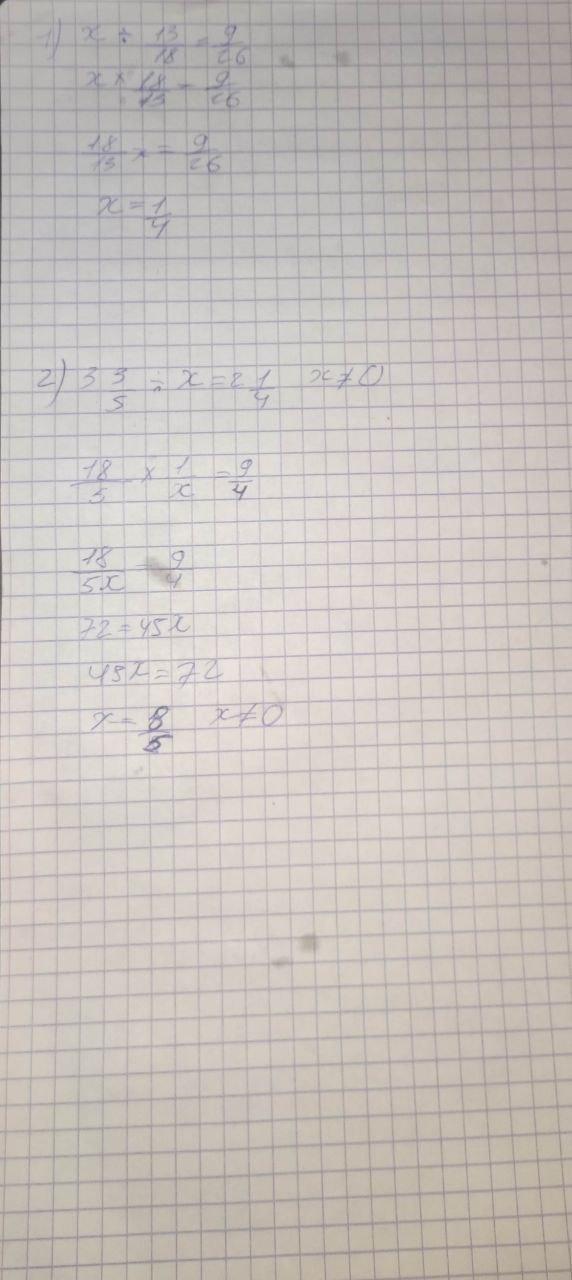 1) x ÷ 13/18 = 9/26
x × 18/13 = 9/26
18/13 x = 9/26
x = 1/4
2) 3 3/5 ÷ x = 2 1/4 x ≠ 0
18/5 × 1/x = 9/4
18/5x = 9/4
72 = 45x
45x = 72
x = 8/5 x ≠ 0